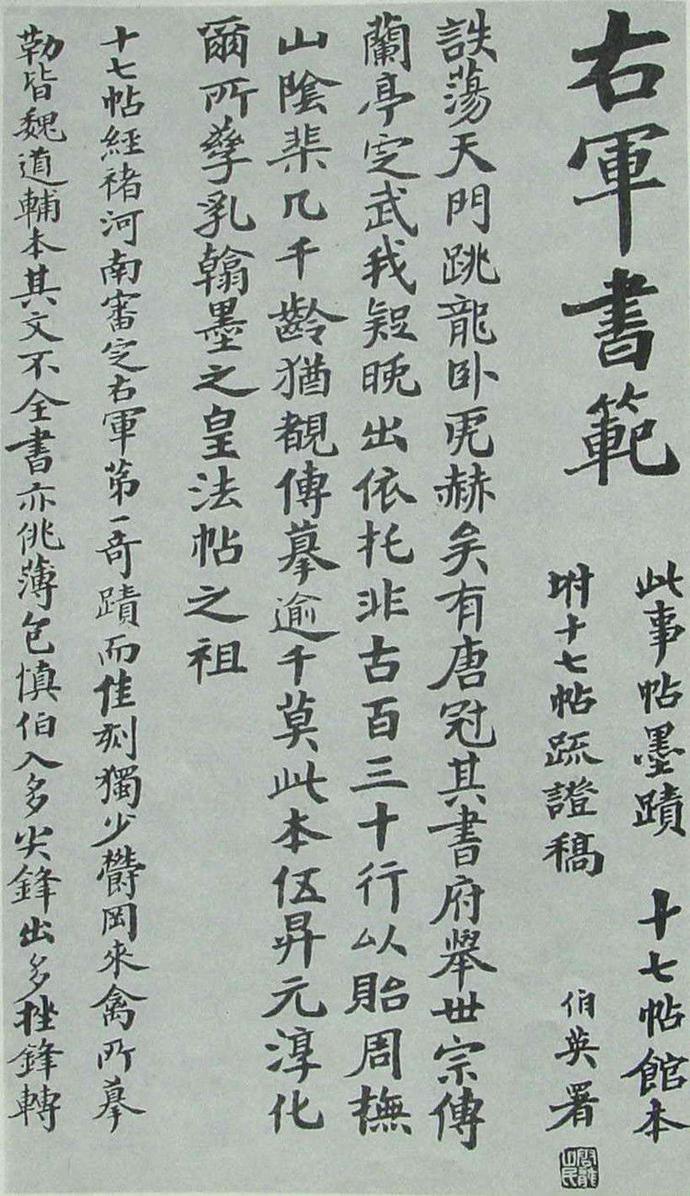 右軍書範
此事帖墨蹟 十七帖館本
坿十七帖疏證稿 伯英署
詄蕩天門跳龍卧虎赫矣有唐冠其書府舉世宗傳
蘭亭定武我疑晚出依托非古百三十行以貽周撫
山陰棐几千齡猶覩傳摹逾千莫此本伍昇元淳化
爾所孳乳翰墨之皇法帖之祖
十七帖經褚河南審定右軍第一奇蹟而佳刻獨少鬱岡來禽所摹
勒皆魏道輔本其文不全書亦佻薄包慎伯入多尖鋒出多挫鋒轉